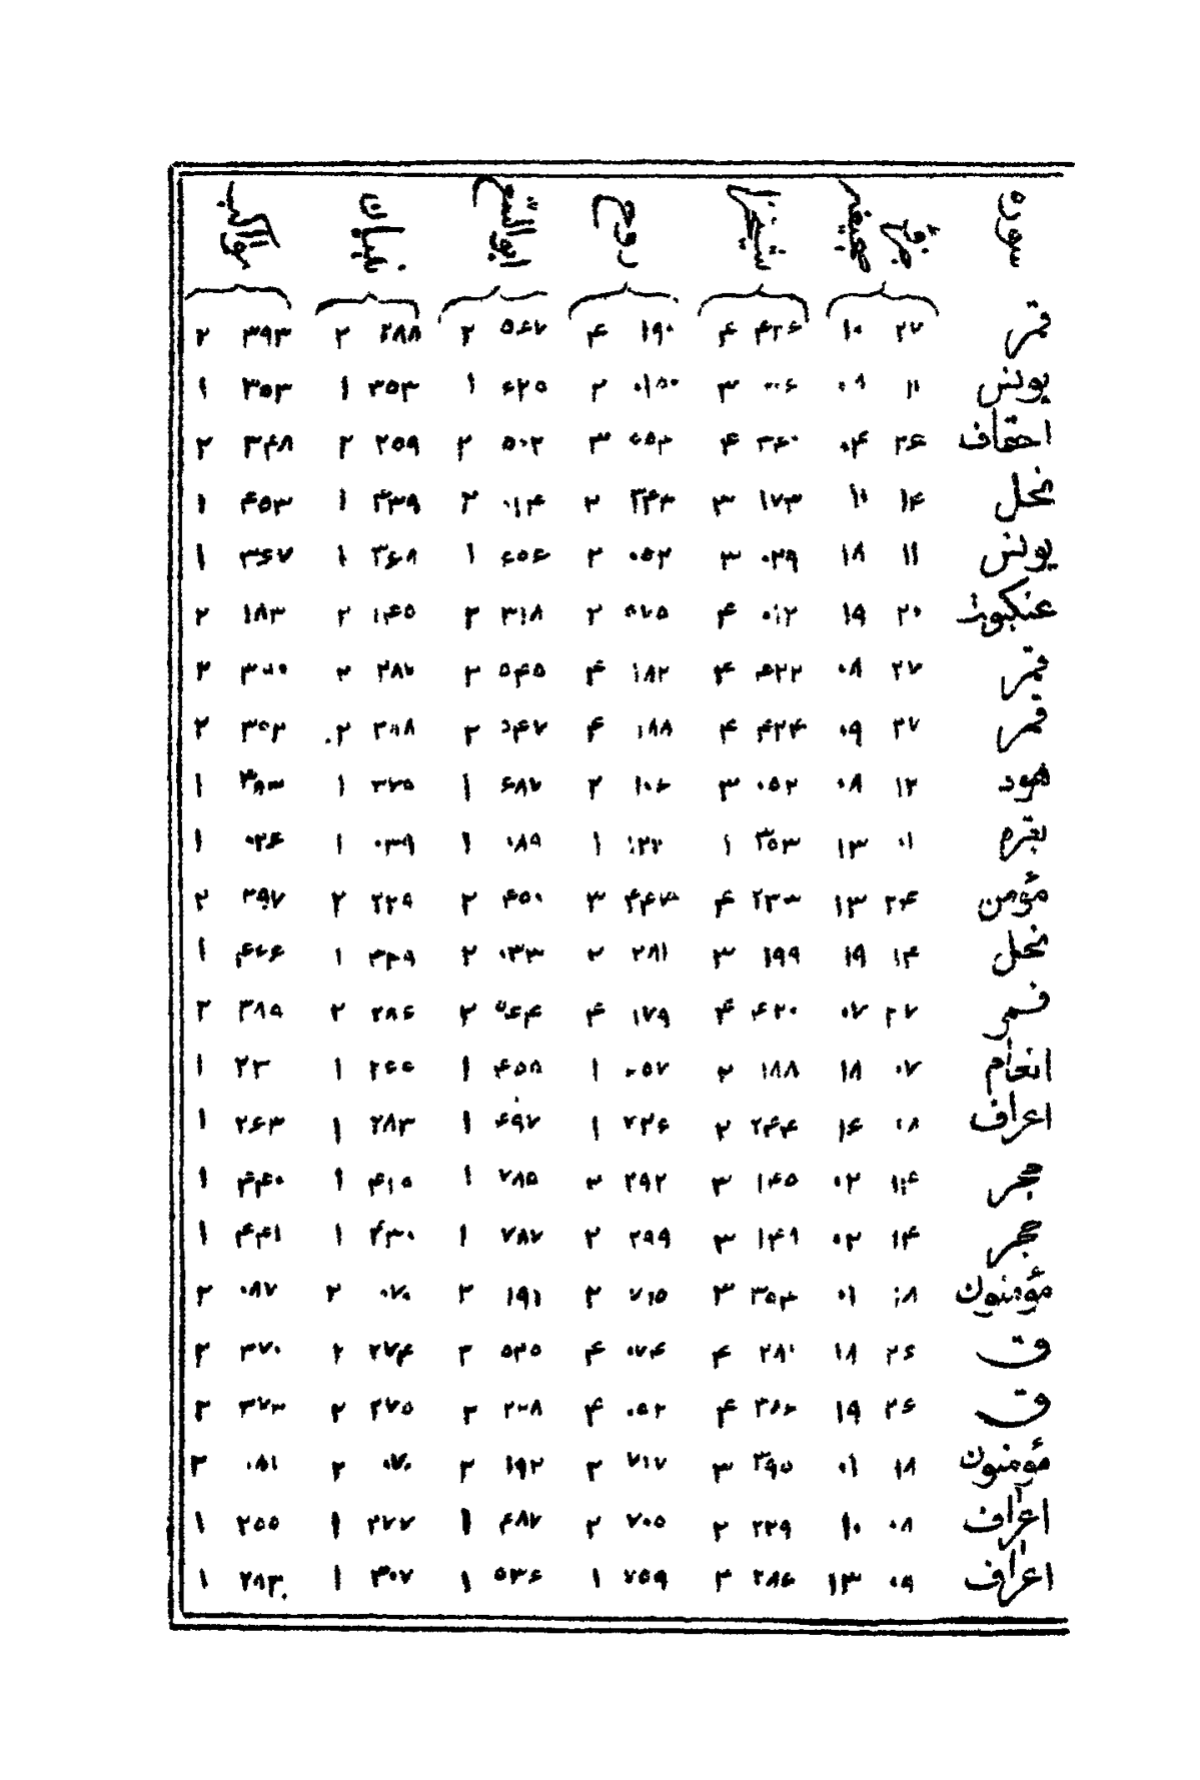 سوره جزؤ صحیفه شیخزاده روح ابوالسع تبیان مواکب
قمر ۲۷ ۱۰ ۴۲۶ ۴ ۱۹۰ ۴ ۵۶۷ ۲ ۲۸۸ ۲ ۳۹۳ ۲
یونس ۱۱ ۰۹ ۰۰۶ ۳ ۰۱۵۰ ۲ ۶۲۵ ۱ ۳۵۳ ۱ ۳۵۳ ۱
احقاف ۲۶ ۰۴ ۳۶۰ ۴ ۳ ۵۰۲ ۲ ۲۵۹ ۲ ۳۴۸ ۲
نحل ۱۴ ۱۱ ۱۷۳ ۳ ۲۴۳ ۲ ۰۱۴ ۲ ۴۳۹ ۱ ۴۵۳ ۱
یونس ۱۱ ۱۸ ۰۲۹ ۳ ۰۵۲ ۲ ۶۵۶ ۱ ۳۶۸ ۱ ۳۶۷ ۱
عنکبوت ۲۰ ۱۹ ۰۱۲ ۴ ۵۷۵ ۲ ۳۱۸ ۲ ۱۴۵ ۲ ۱۸۳ ۲
قمر ۲۷ ۰۸ ۴۲۲ ۴ ۱۸۲ ۴ ۵۴۵ ۲ ۲۸۷ ۲ ۲
قمر ۲۷ ۰۹ ۴۲۴ ۴ ۱۸۸ ۴ ۵۴۷ ۲ ۲ ۳۵۲ ۲
هود ۱۲ ۰۸ ۰۵۲ ۳ ۱۰۶ ۲ ۶۸۷ ۱ ۳۷۵ ۱ ۳۸۳ ۱
بقره ۰۱ ۱۳ ۳۵۳ ۱ ۱۲۲ ۱ ۰۸۹ ۱ ۰۳۹ ۱ ۰۲۶ ۱
مؤمن ۲۴ ۱۳ ۲۳۳ ۴ ۴۴۳ ۳ ۴۵۰ ۲ ۲۲۹ ۲ ۲۹۷ ۲
نحل ۱۴ ۱۹ ۱۹۹ ۳ ۲۸۱ ۲ ۰۳۳ ۲ ۴۴۹ ۱ ۴۶۶ ۱
قمر ۲۷ ۰۷ ۴۲۰ ۴ ۱۷۹ ۴ ۵۶۴ ۲ ۲۸۶ ۲ ۳۸۹ ۲
انعام ۰۷ ۱۸ ۱۸۸ ۲ ۶۵۷ ۱ ۴۵۸ ۱ ۲۶۶ ۱ ۲۳ ۱
اعراف ۰۸ ۱۶ ۲۴۴ ۲ ۷۳۶ ۱ ۴۹۷ ۱ ۲۸۳ ۱ ۲۶۳ ۱
حجر ۱۴ ۰۲ ۱۴۵ ۳ ۲۹۲ ۲ ۷۸۵ ۱ ۴۱۵ ۱ ۴۴۰ ۱
حجر ۱۴ ۰۲ ۱۴۹ ۳ ۲۹۹ ۲ ۷۸۷ ۱ ۴۳۰ ۱ ۴۴۱ ۱
مؤمنون ۱۸ ۰۱ ۳۵۳ ۳ ۷۱۵ ۲ ۱۹۱ ۲ ۰۷۰ ۲ ۰۸۷ ۲
ق ۲۶ ۱۸ ۲۸۱ ۴ ۰۷۴ ۴ ۵۲۵ ۲ ۲۷۴ ۲ ۳۷۰ ۲
ق ۲۶ ۱۹ ۳۸۶ ۴ ۰۵۲ ۴ ۲۳۸ ۲ ۲۷۵ ۲ ۳۷۳ ۲
مؤمنون ۱۸ ۰۱ ۳۹۵ ۳ ۷۱۷ ۲ ۱۹۲ ۲ ۰۷۰ ۲ ۰۸۱ ۲
اعراف ۰۸ ۱۰ ۲۲۹ ۲ ۷۰۵ ۲ ۴۸۷ ۱ ۲۷۷ ۱ ۲۵۵ ۱
اعراف ۰۹ ۱۳ ۲۸۶ ۲ ۷۵۹ ۱ ۵۳۶ ۱ ۳۰۷ ۱ ۲۸۳ ۱